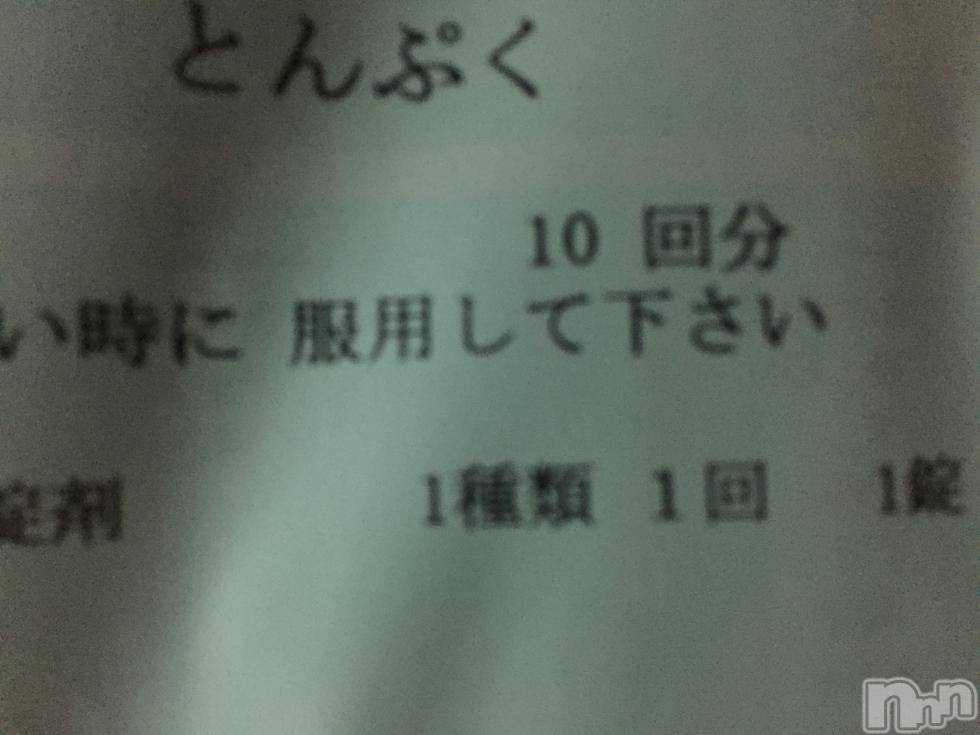 とんぷく
10 回分
い時に 服用して下さい
錠剤 1種類 1回 1錠
nnn